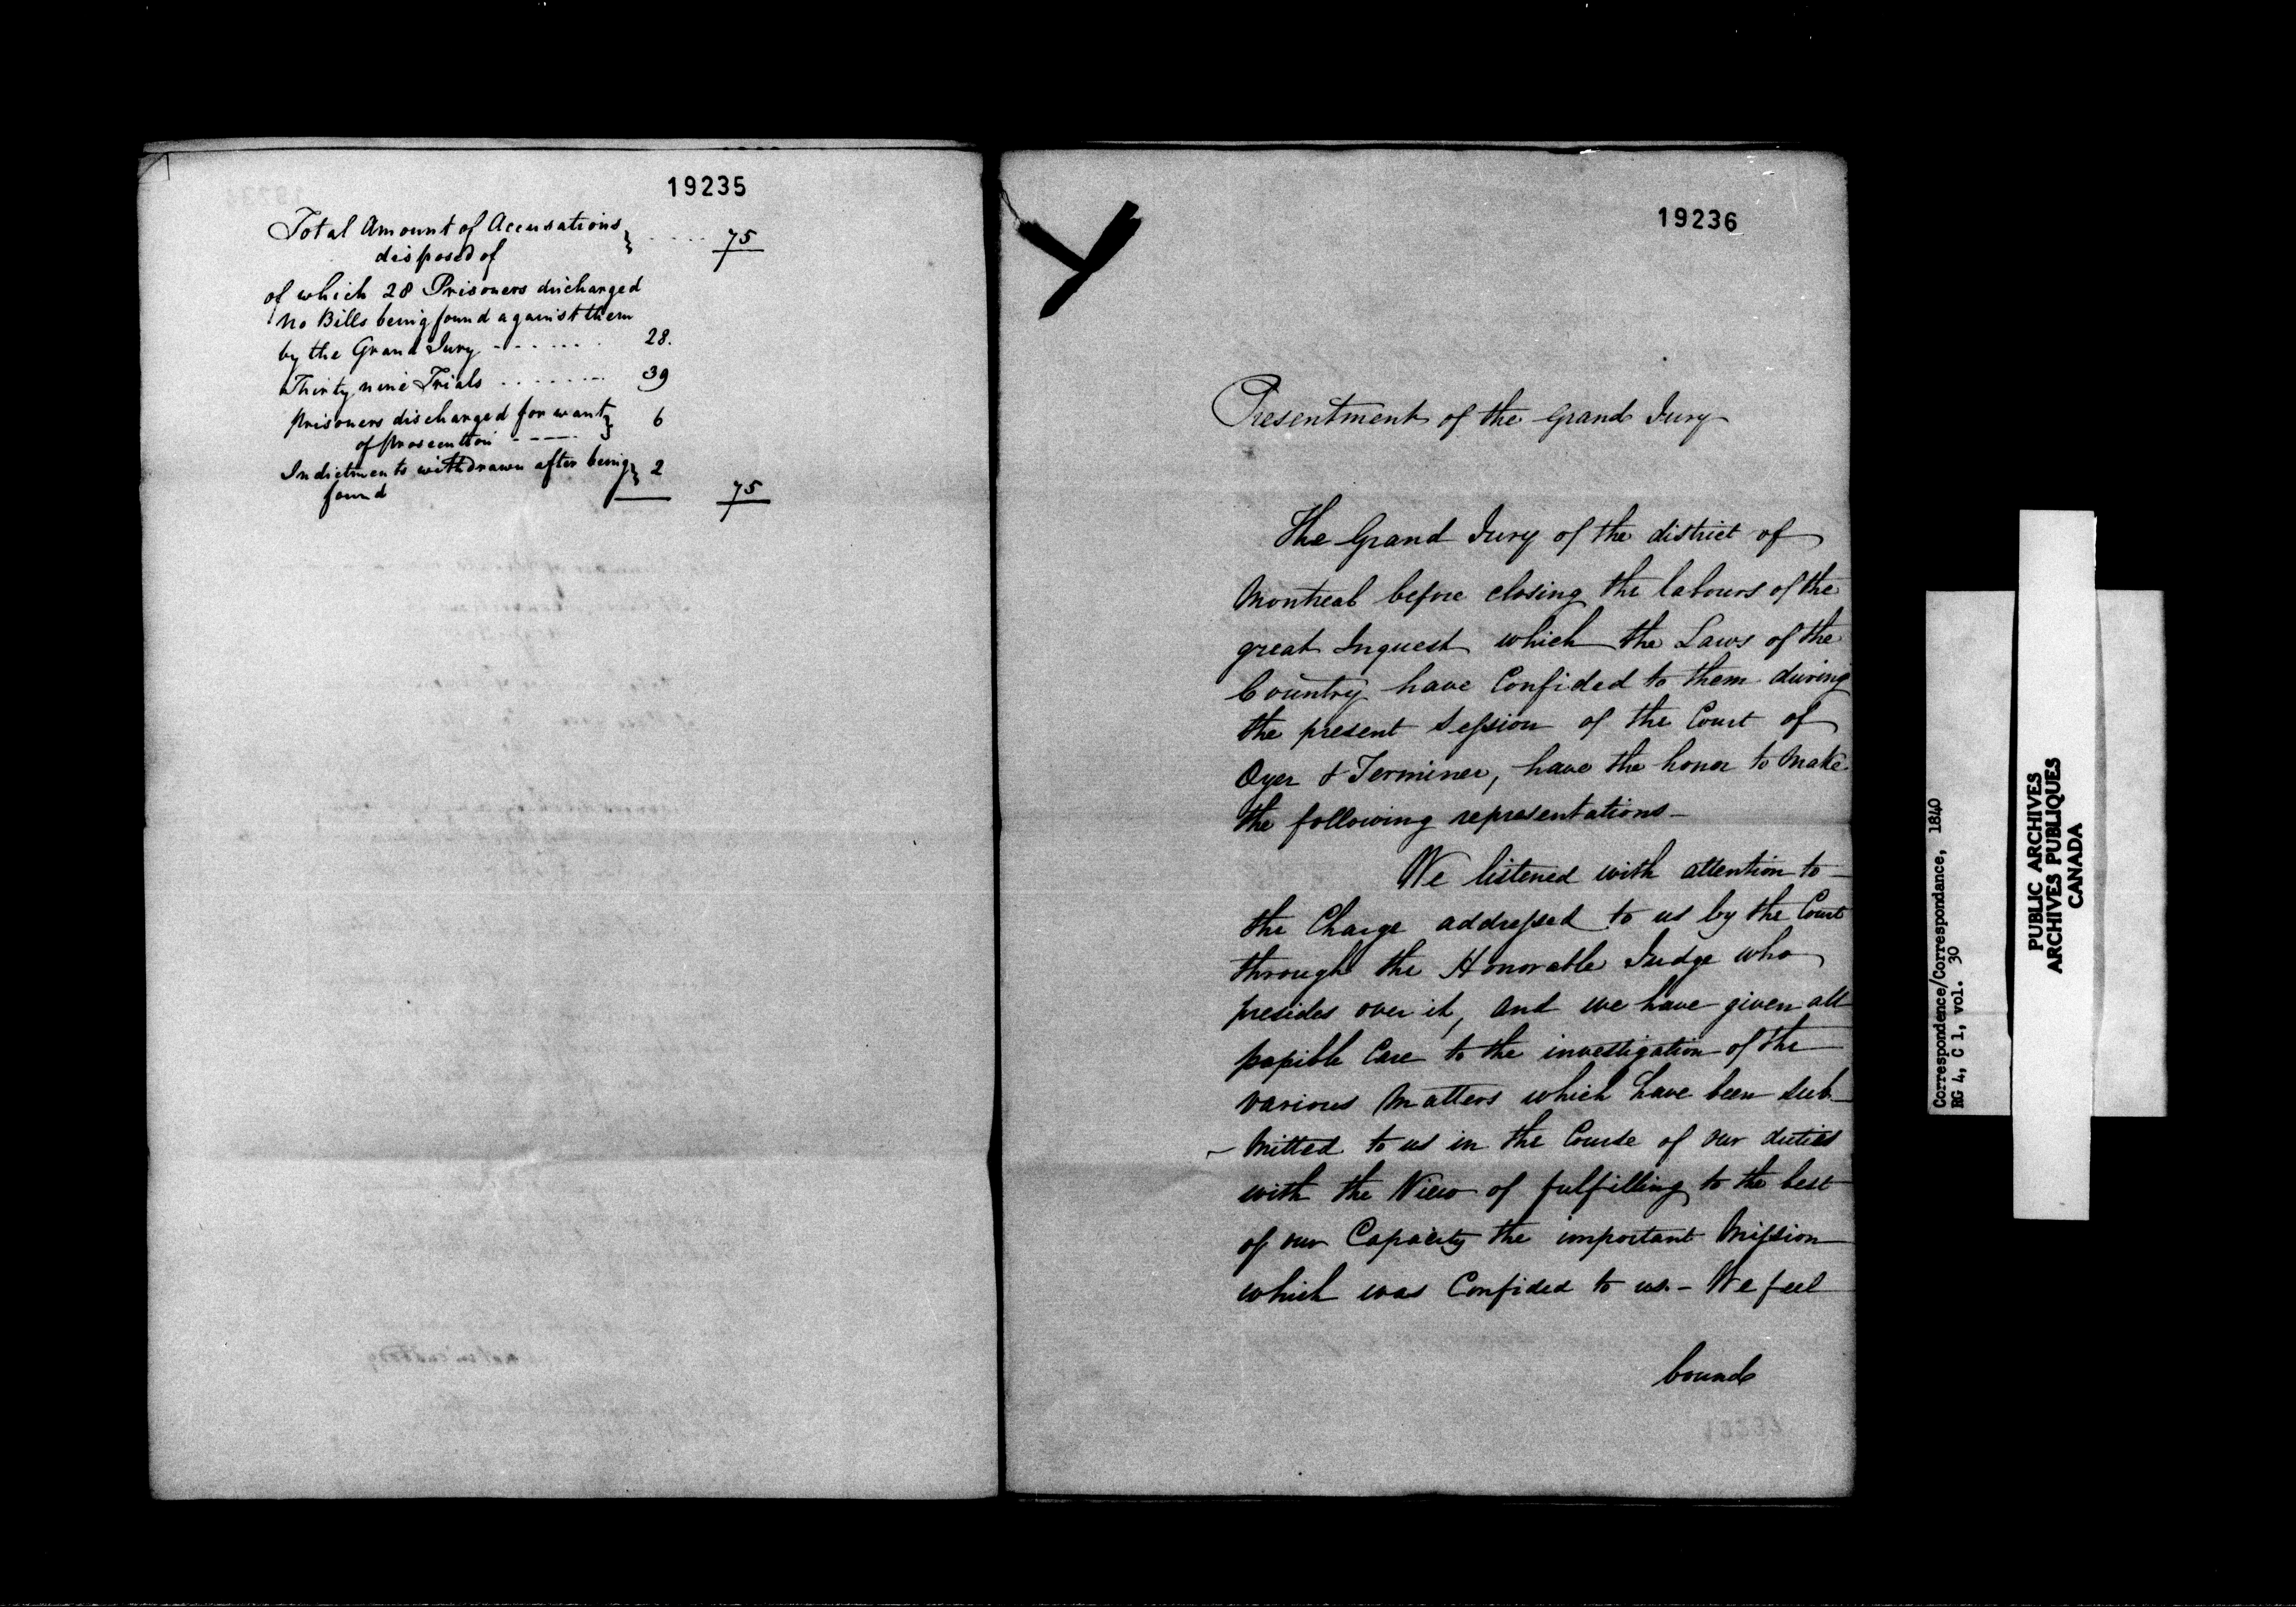 19235
Total Amount of Accusations } ..... 75
disposed of
of which 28 Prisoners discharged
no Bills being found against them
by the Grand Jury ------- 28.
Thirty nine Trials ........ 39
prisoners discharged for want } 6
of prosecution -----
Indictments withdrawn after being } 2
found 75
19236
Presentment of the Grand Jury
The Grand Jury of the district of
Montreal before closing the labours of the
great Inquest which the Laws of the
Country have Confided to them during
the present Session of the Court of
Oyer & Terminer, have the honor to make
the following representations -
We listened with attention to
the Charge addressed to us by the Court
through the Honorable Judge who
presides over it, and we have given all
possible Care to the investigation of the
various Matters which have been sub-
- mitted to us in the Course of our duties
with the View of fulfilling to the best
of our Capacity the important Mission
which was Confided to us. - We feel
bound
Correspondence/Correspondance, 1840
RG 4, C 1, vol. 30
PUBLIC ARCHIVES
ARCHIVES PUBLIQUES
CANADA